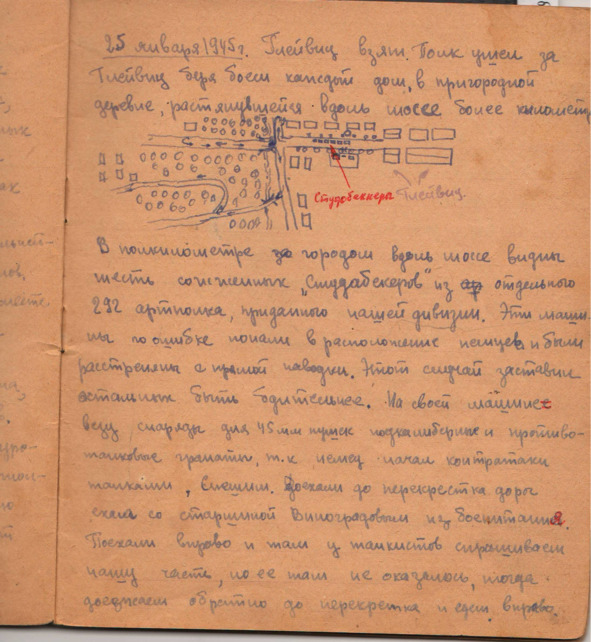 25 января 1945г. Глейвиц взят. Полк ушел за
Глейвиц беря боем каждый дом, в пригородной
деревне, растянувшейся вдоль шоссе более километр
Студобеккера
Глейвиц.
В полкилометре за городом вдоль шоссе видны
шесть сожженных „Студабекеров" из отдельного
292 артполка, приданного нашей дивизии. Эти маши-
ны по ошибке попали в расположение немцев и были
расстреляны с прямой наводки. Этот случай заставил
остальных быть бдительнее. На своей машине
везу снаряды для 45мм пушек подкалиберные и противо-
танковые гранаты, т.к. немец начал контратаки
танками, Спешим. Доехали до перекрестка дорог
ехала со старшиной Виноградовым из боепитания.
Поехали вправо и там у танкистов спрашиваем
нашу часть, но ее там не оказалось, тогда
доезжаем обратно до перекретка и едем вправо.